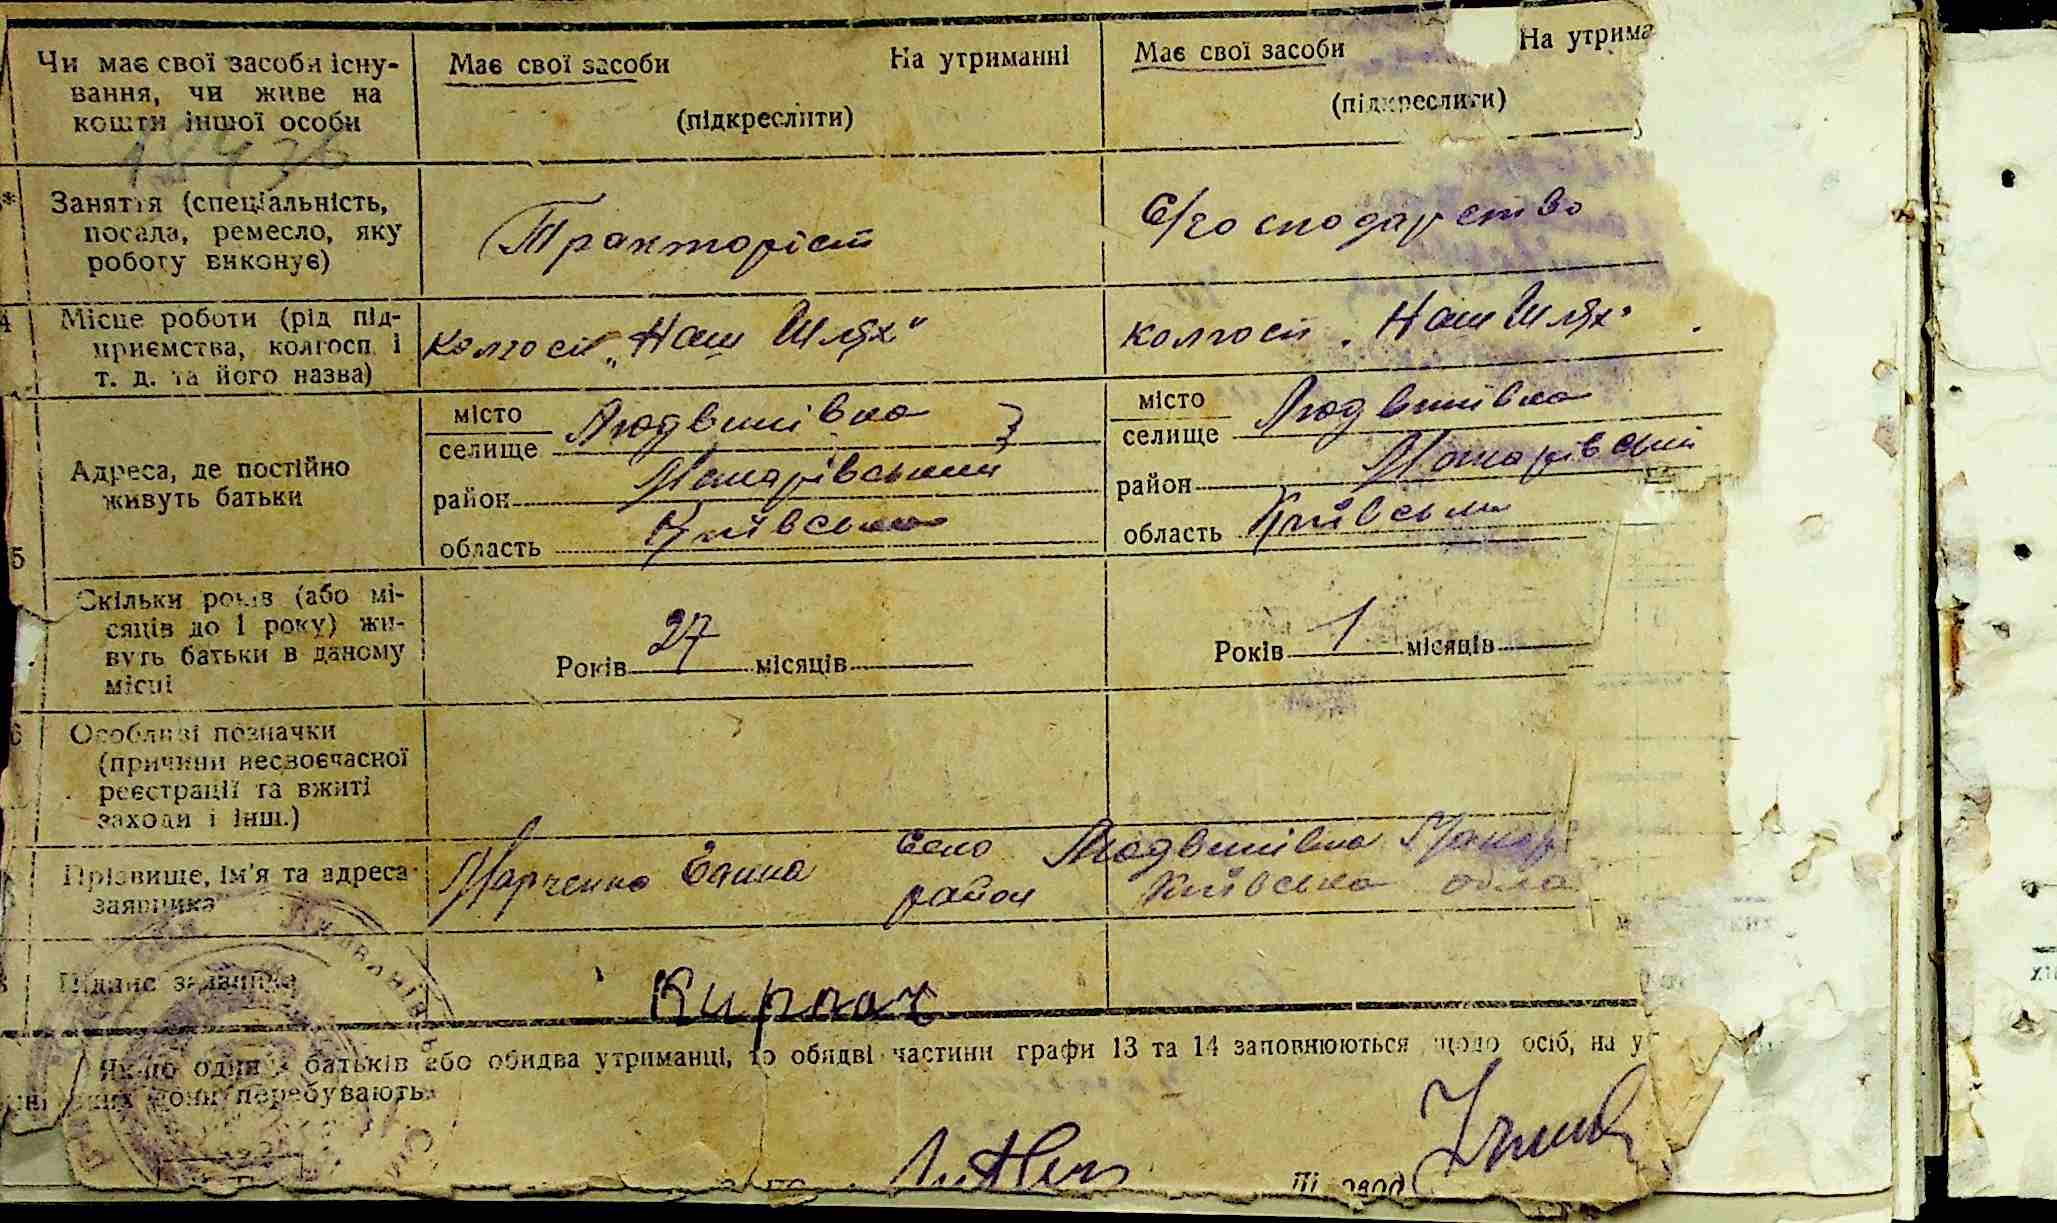 Чи має свої засоби існу- Має свої засоби На утриманні Має свої засоби На утрима
вання, чи живе на
кошти іншої особи (підкреслити) (підкреслити)
Заняття (спеціальність,
посада, ремесло, яку
роботу виконує) Тракторіст С/господарство
4 Місце роботи (рід під-
приємства, колгосп і
т. д. та його назва) колгосп „Наш Шлях“ колгосп „Наш Шлях“
Адреса, де постійно
живуть батьки
місто
селище Людвинівка місто
селище Людвинівка
район Макарівський район Макарівський
область Київська область Київська
5 Скільки років (або мі-
сяців до 1 року) жи-
вуть батьки в даному
місці Років 27 місяців Років 1 місяців
6 Особливі позначки
(причини несвоєчасної
реєстрації та вжиті
заходи і інш.)
Прізвище, ім'я та адреса
заявника Марченко Ганна село Людвинівка Макар
район Київська обла
Підпис заявника
Якщо один з батьків або обидва утриманці, то обидві частини графи 13 та 14 заповнюються щодо осіб, на у
яких вони перебувають